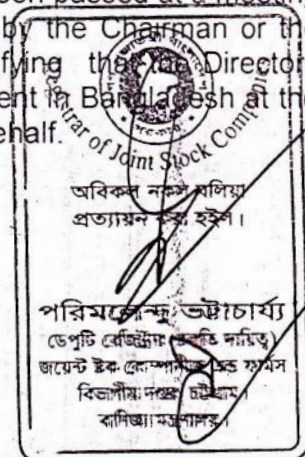 been passed at a meeti
by the Chairman or the
fying that the Director
ent in Bangladesh at the
ehalf.
Registrar of Joint Stock Comp
অবিকল নকল বলিয়া
প্রত্যায়ন করা হইল।
পরিমলেন্দু ভট্টাচার্য্য
ডেপুটি রেজিস্ট্রার দায়িত্ব)
জয়েন্ট ষ্টক কোম্পানীজ এন্ড ফার্মস
বিভাগীয় দপ্তর, চট্টগ্রাম।
বানিজ্য মন্ত্রণালয়।